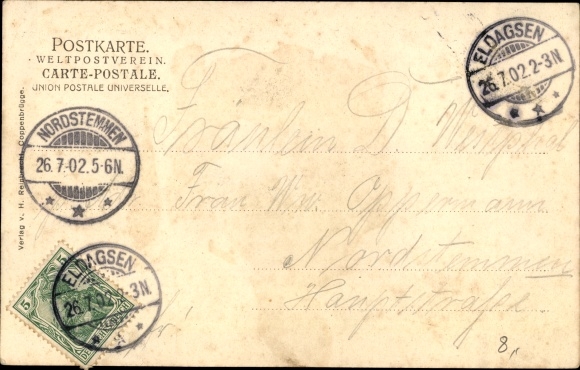 POSTKARTE.
· WELTPOSTVEREIN. ·
CARTE-POSTALE.
UNION POSTALE UNIVERSELLE.
ELDAGSEN
26.7.02.2-3N
NORDSTEMMEN
26.7.02.5-6N.
Verlag v. H. Coppenbrügge.
Fräulein D. Westphal
Frau Ww Oppermann
Nordstemmen
Hauptstraße
ELDAGSEN
26.7.02 3N
5
5
8,,